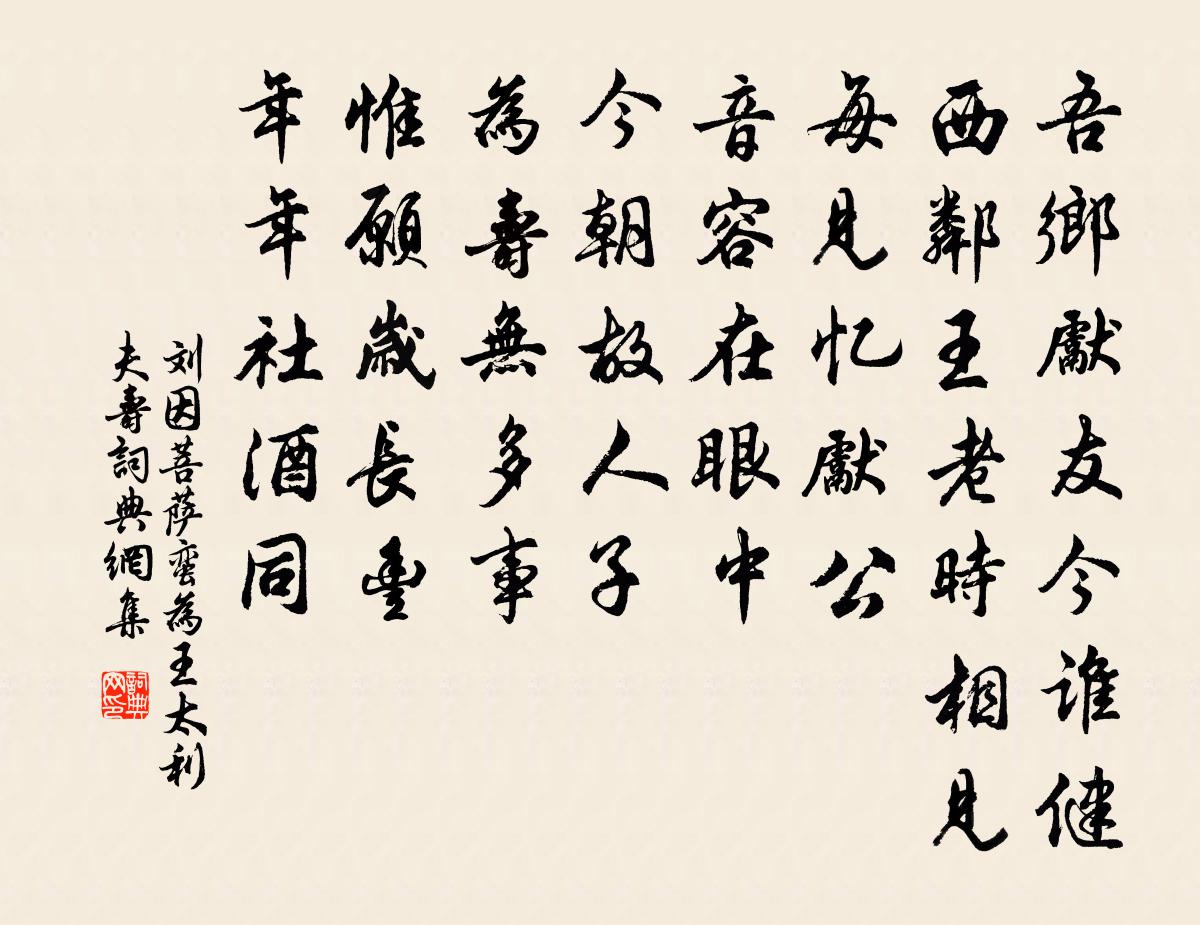 吾鄉獻友今誰健
西鄰王老時相見
每見忆獻公
音容在眼中
今朝故人子
為壽無多事
惟願歲長豐
年年社酒同
刘因菩萨蛮為王太利
夫壽詞典網集
詞典網印